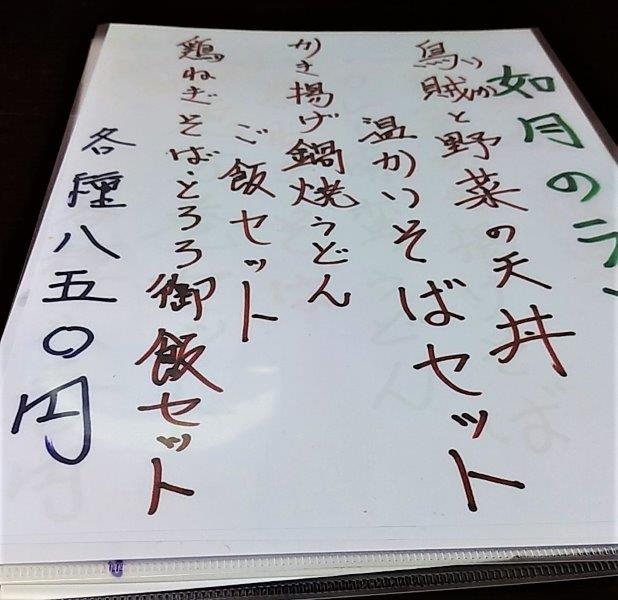 如月のラン
烏賊と野菜の天丼
いか
温かいそばセット
かき揚げ鍋焼うどん
ご飯セット
鶏ねぎそば・とろろ御飯セット
各種八五〇円